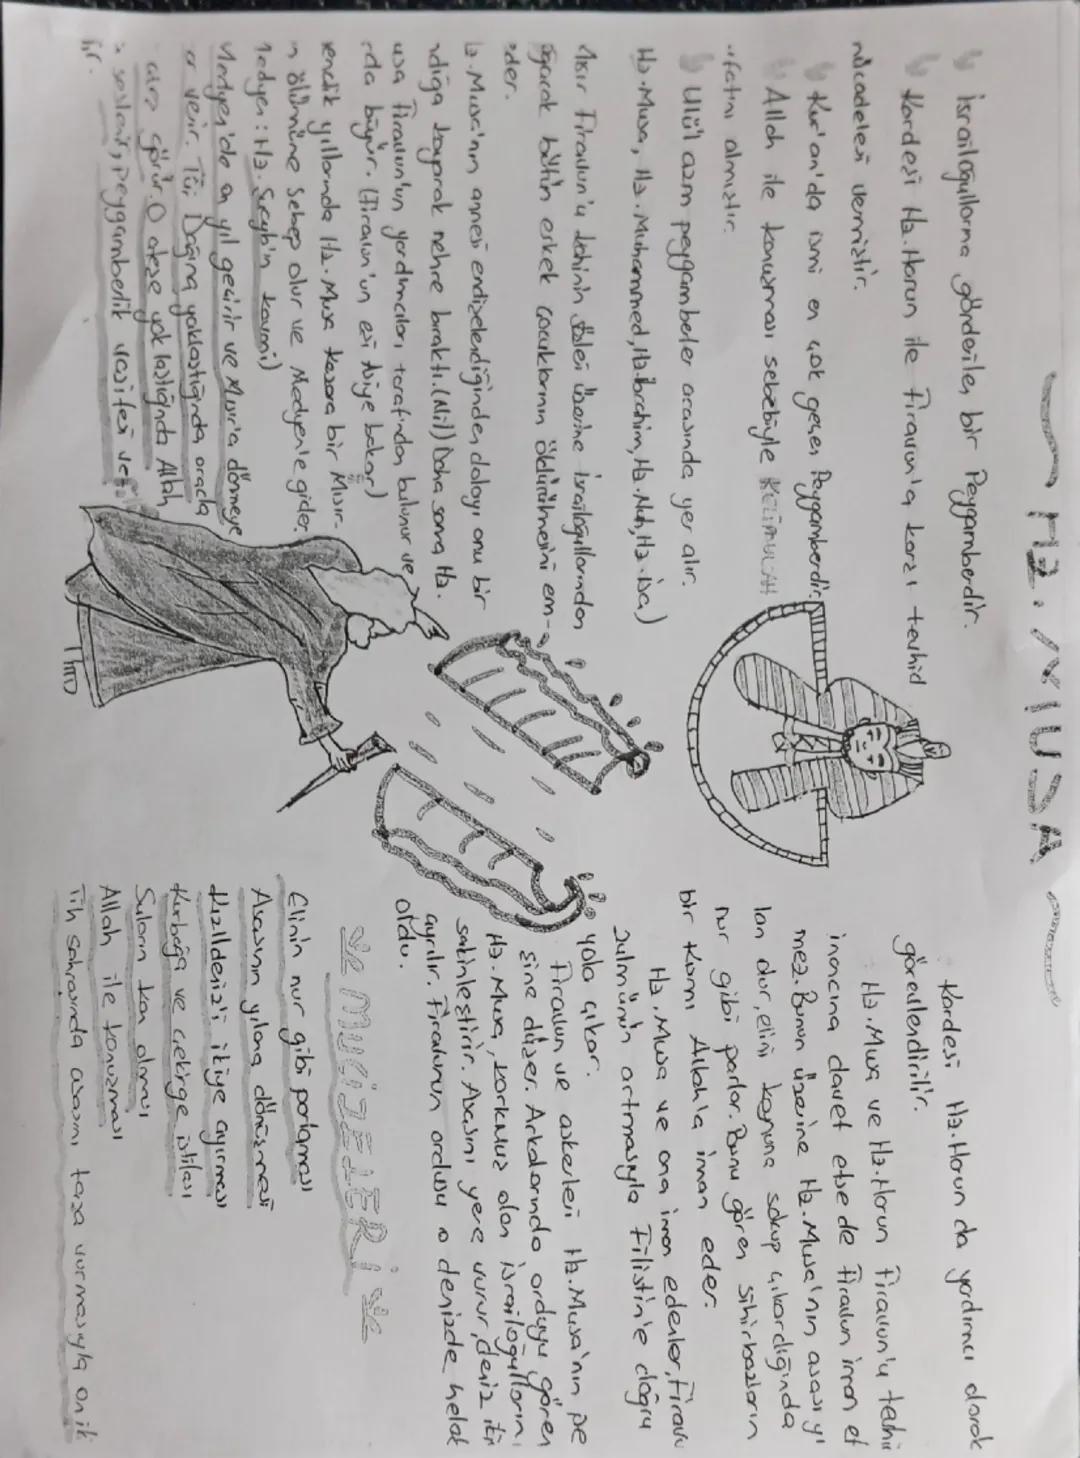 Hz. MUSA
İsrailoğullarına gönderilen bir Peygamberdir.
Kardeşi Hz. Harun ile Firavun'a karşı tevhid
mücadelesi vermiştir.
Kur'an'da ismi en çok geçen Peygamberdir.
Allah ile konuşması sebebiyle KELİMULLAH
sıfatını almıştır.
Ulü'l azm peygamberler arasında yer alır.
Hz. Musa, Hz. Muhammed, Hz. İbrahim, Hz. Nuh, Hz. İsa)
Mısır Firavun'u kahinin sözleri üzerine İsrailoğullarından
doğacak bütün erkek çocuklarının öldürülmesini em-
reder.
Hz. Musa'nın annesi endişelendiğinden dolayı onu bir
sandığa koyarak nehre bıraktı. (Nil) Daha sonra Hz.
Musa Firavun'un yardımcıları tarafından bulunur ve
orda büyür. (Firavun'un eşi Asiye bakar)
Gençlik yıllarında Hz. Musa kazara bir Mısır-
ın ölümüne sebep olur ve Medyen'e gider.
Medyen: Hz. Şuayb'ın kavmi)
Medyen'de on yıl geçirir ve Mısır'a dönmeye
karar verir. Tûr Dağına yaklaştığında orada
ateş görür. O ateşe yaklaştığında Allah
seslenir, peygamberlik vazifesi ve
rir.
THO
Kardeşi Hz. Harun da yardımcı olarak
görevlendirilir.
Hz. Musa ve Hz. Harun Firavun'u tevhi
inancına davet etse de Firavun iman et
mez. Bunun üzerine Hz. Musa'nın asası yı
lan olur, elini koynuna sokup çıkardığında
nur gibi parlar. Bunu gören sihirbazların
bir kısmı Allah'a iman eder.
Hz. Musa ve ona iman edenler, Firavu
zulmünün artmasıyla Filistin'e doğru
yola çıkar.
Firavun ve askerleri Hz. Musa'nın pe
şine düşer. Arkalarında orduyu gören
Hz. Musa, korkmuş olan İsrailoğullarını
sakinleştirir. Asasını yere vurur, deniz iki
ayrılır. Firavunun ordusu o denizde helak
oldu.
MUCİZELERİ
Elinin nur gibi parlaması
Asasının yılana dönüşmesi
Kızıldeniz'i ikiye ayırması
Kurbağa ve çekirge istilası
Suların kan olması
Allah ile konuşması
Tih sahrasında asasını taşa vurmasıyla on ik